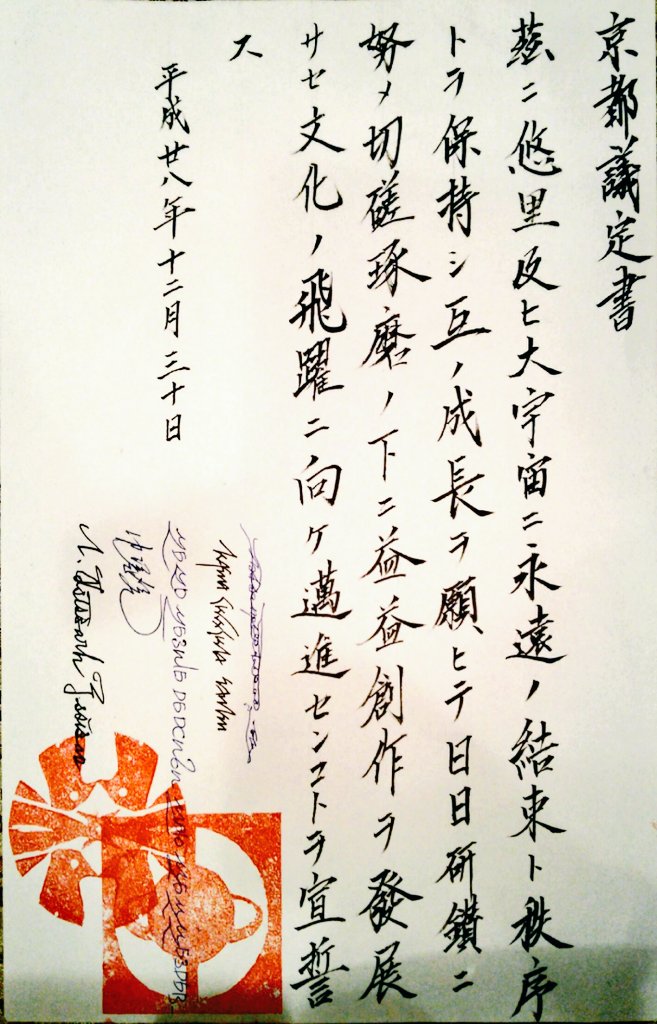 京都議定書
茲ニ悠里及ヒ大宇宙ニ永遠ノ結束ト秩序
トヲ保持シ互ノ成長ヲ願ヒテ日日研鑽ニ
努メ切磋琢磨ノ下ニ益益創作ヲ發展
サセ文化ノ飛躍ニ向ケ邁進センコトヲ宣誓
ス
平成廿八年十二月三十日